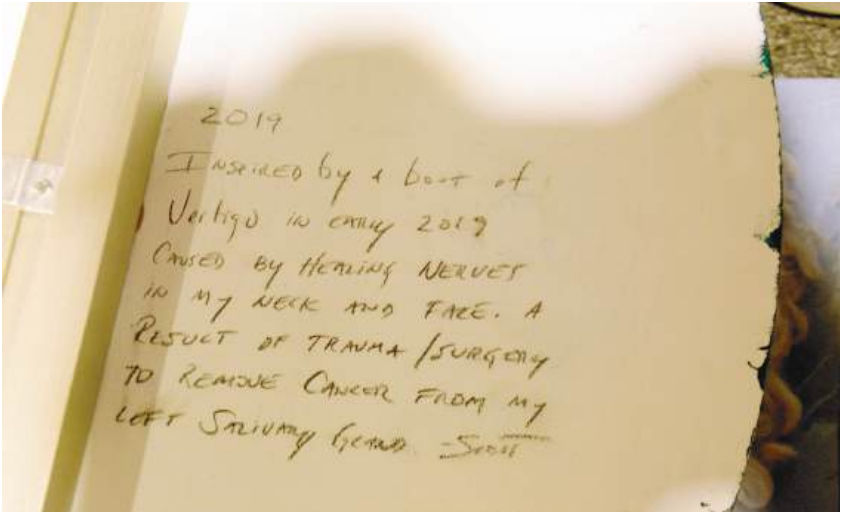 2019
Inspired by a bout of
Vertigo in early 2019
Caused by Healing Nerves
in my neck and face. A
Result of trauma/surgery
to remove Cancer from my
left Salivary Gland. -Scott